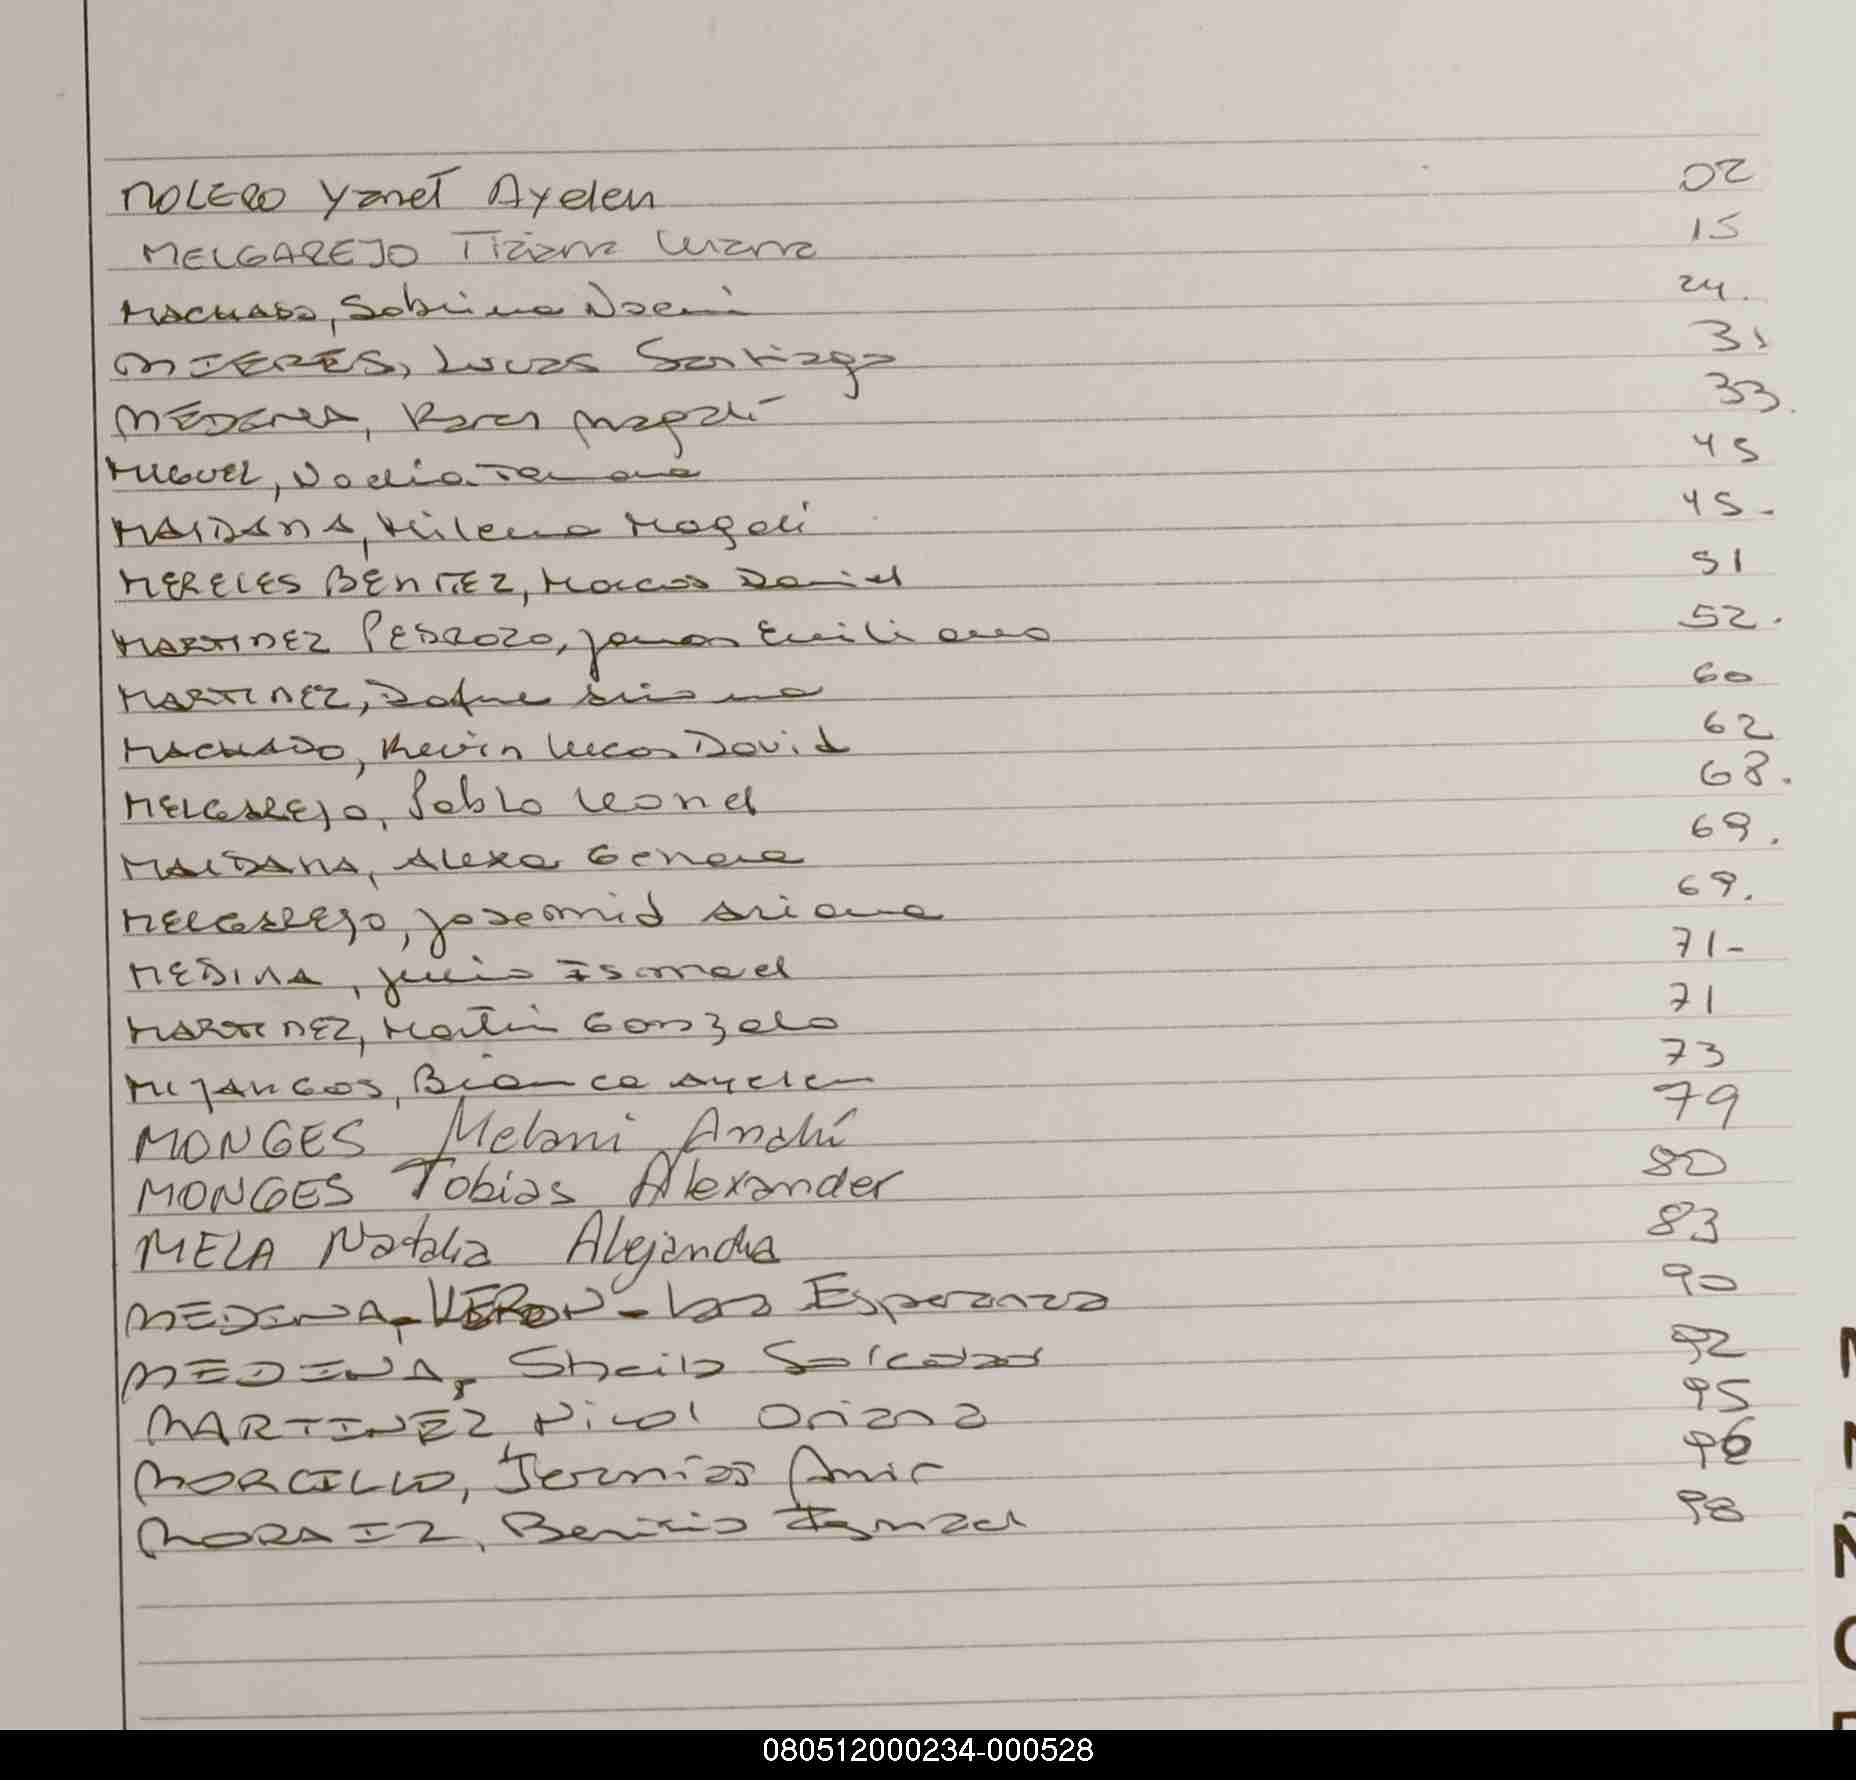 MOLERO Yanet Ayelen 02
MELGAREJO Tiziana Luana 15
MACHADO, Sabrina Noemi 24.
MIERES, Lucas Santiago 31
MEDINA, Karen Magali 33.
MIGUEL, Nadia Tamara 45
MAIDANA, Milena Magali 45.
MERELES BENITEZ, Marcos Daniel 51
MARTINEZ PEDROZO, Jonas Emiliano 52.
MARTINEZ, Dafne 60
MACHADO, Kevin Lucas David 62
MELGAREJO, Pablo Leonel 68.
MAIDANA, Alexa Genara 69.
MELGAREJO, Ariana 69.
MEDINA, Ismael 71-
MARTINEZ, Martin Gonzalo 71
MIJANGOS, Bianca Ayelen 73
MONGES Melani Anahí 79
MONGES Tobias Alexander 80
MELA Natalia Alejandra 83
MEDINA - VERON - Esperanza 90
MEDINA, Sheila Soledad 92
MARTINEZ, Nicol Oriana 95
MORCILLO, Jermias Amir 96
MORAIZ, Benicio Ismael 98
080512000234-000528